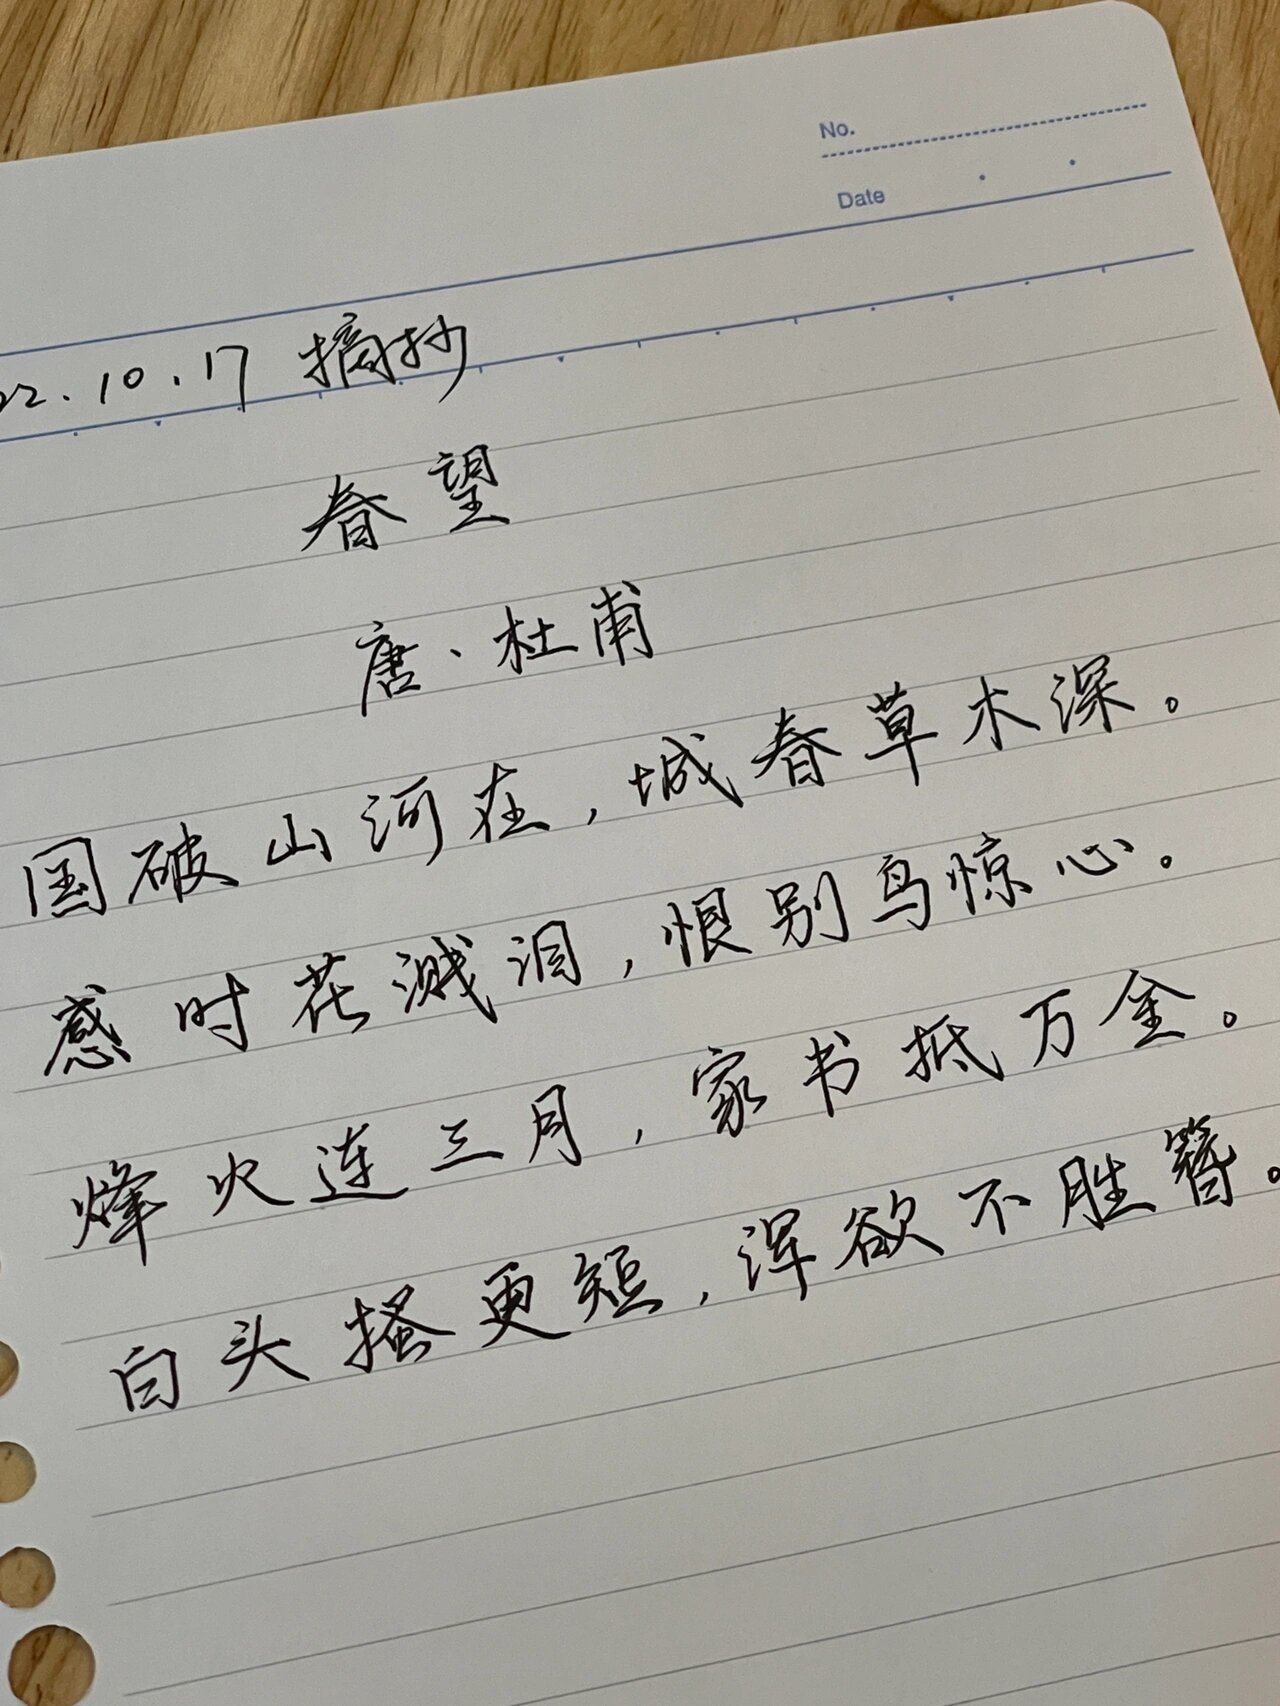 No.
Date
22.10.17 摘抄
春望
唐、杜甫
国破山河在,城春草木深。
感时花溅泪,恨别鸟惊心。
烽火连三月,家书抵万金。
白头搔更短,浑欲不胜簪。